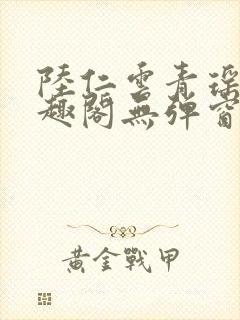 陸仁雲青瑤
趣閣無彈窗
黃金戰甲